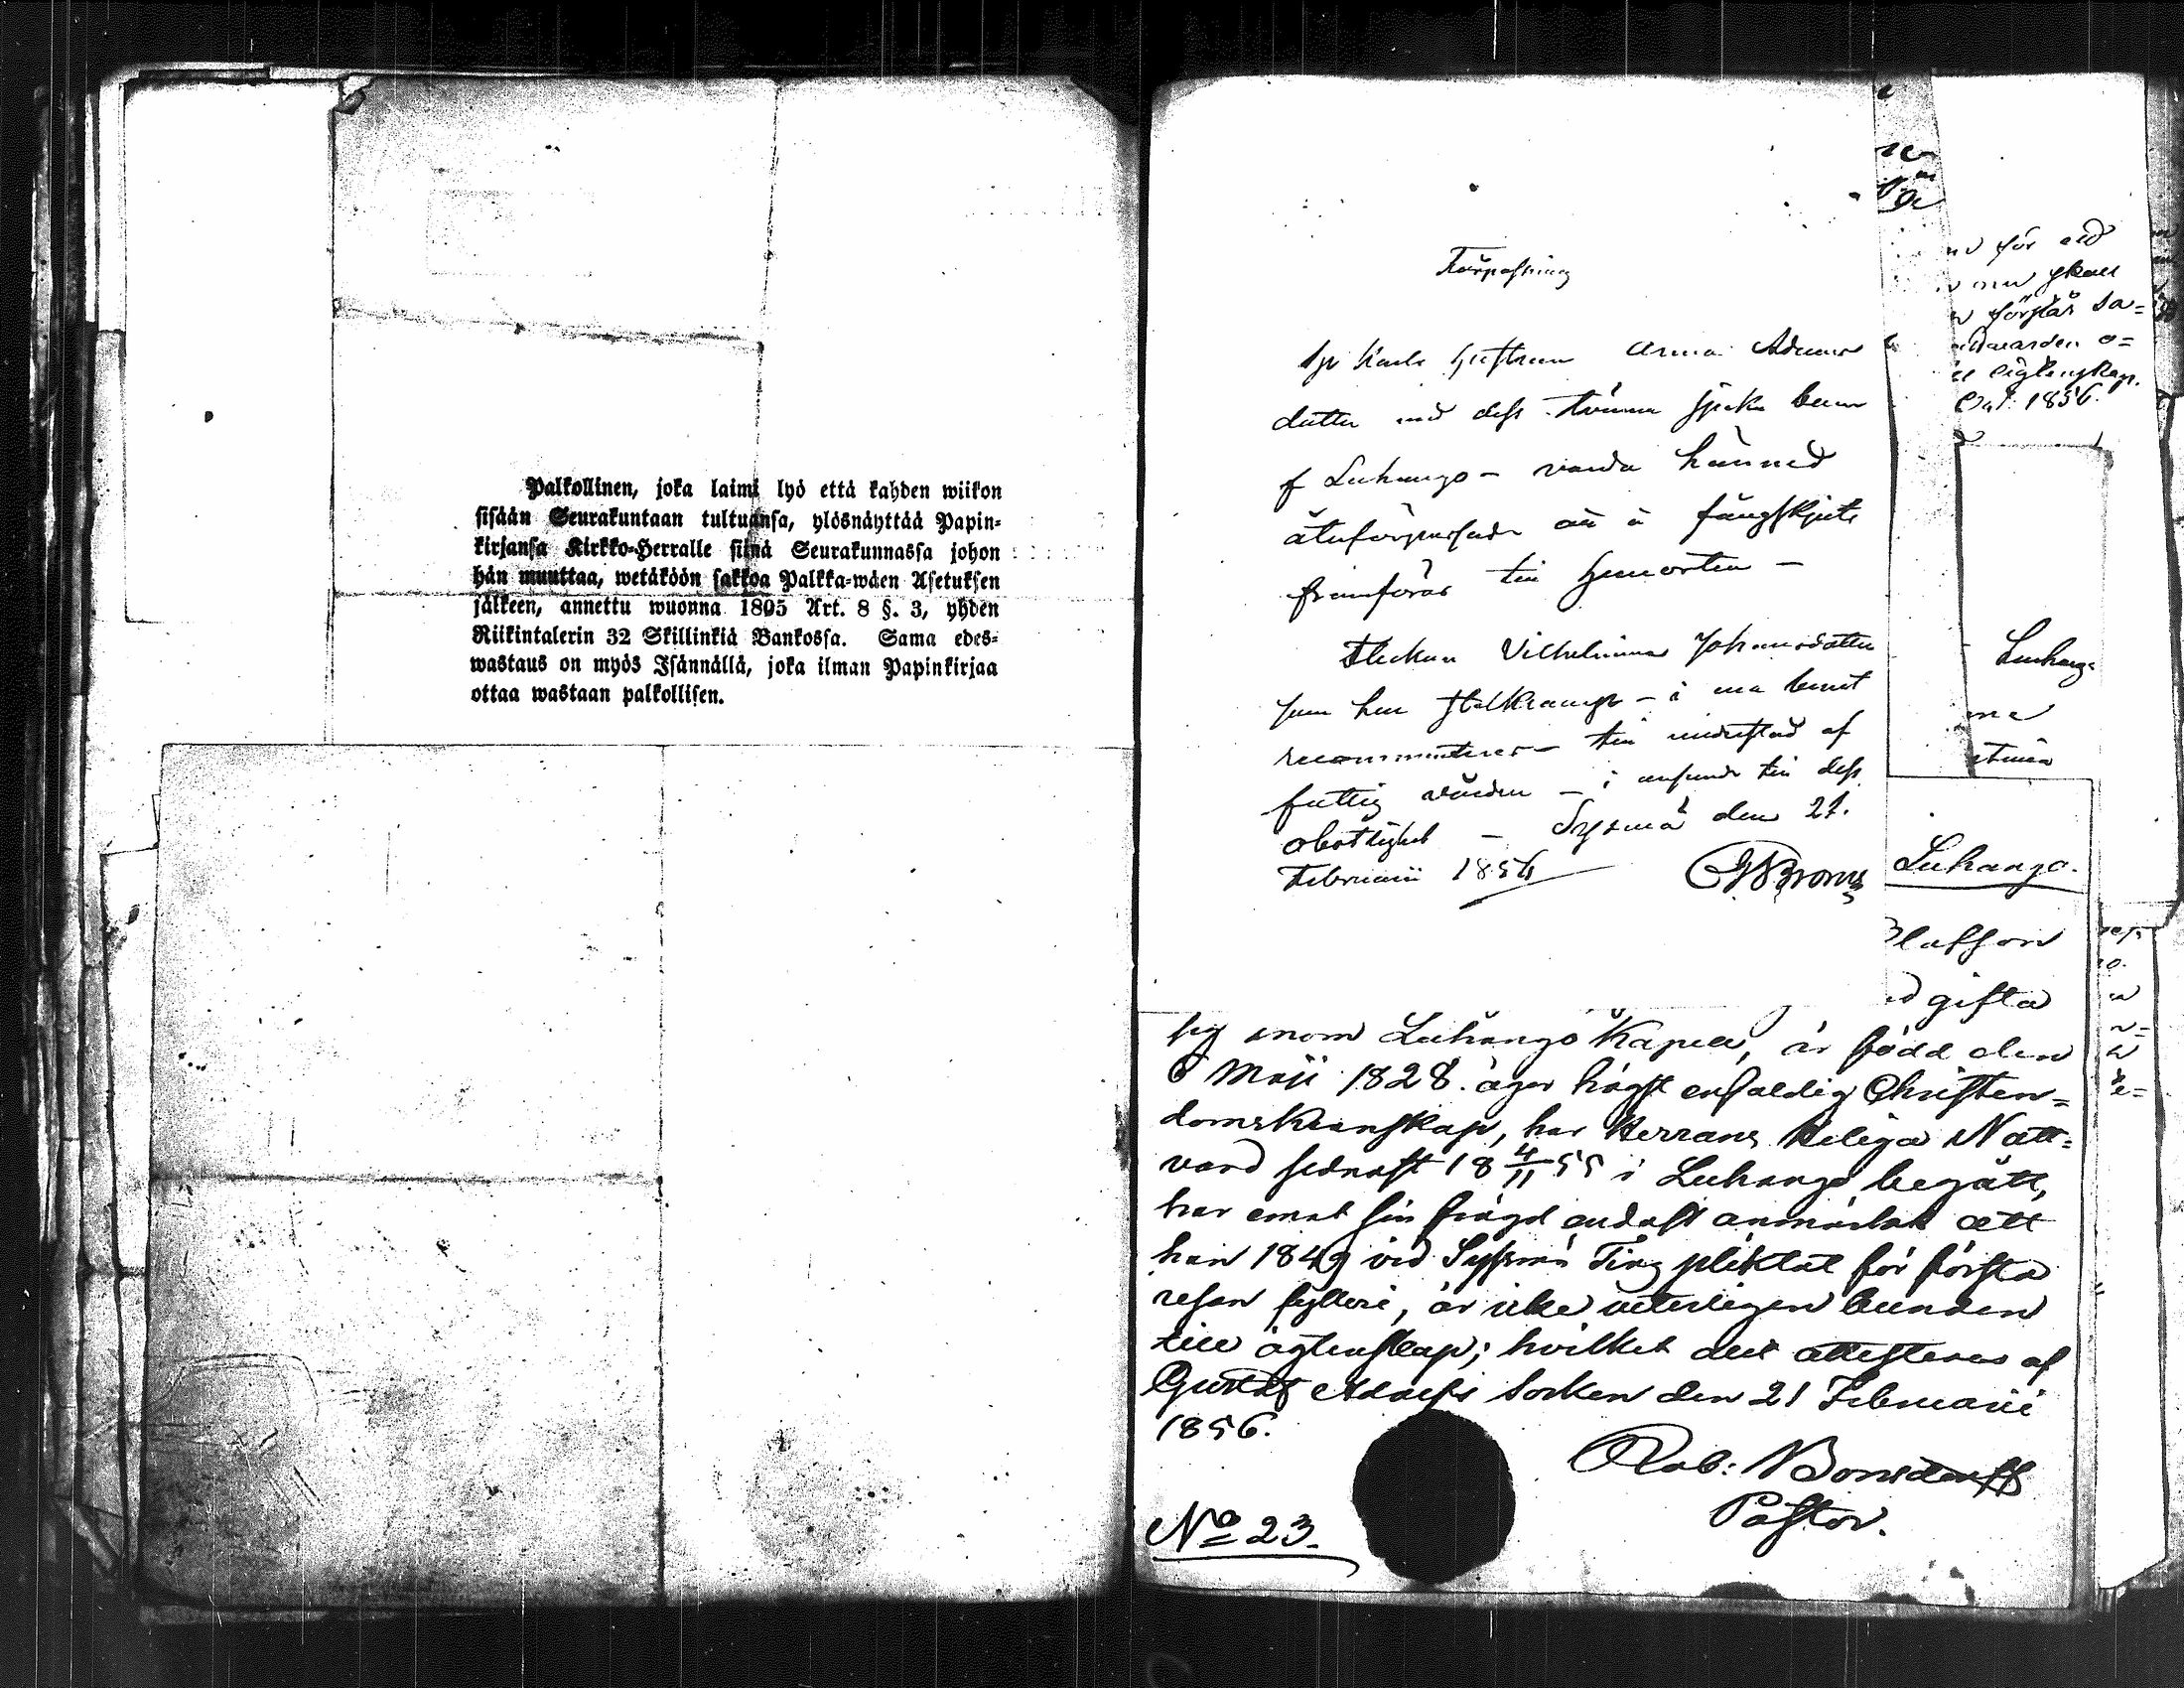 Palkollinen, joka laimi lyö että kahden wiikon
sisään Seurakuntaan tultuansa, ylösnäyttää Papin-
kirjansa Kirkko-Herralle siinä Seurakunnassa johon
hän muuttaa, wetäköön sakkoa Palkka-wäen Asetuksen
jälkeen, annettu wuonna 1805 Art. 8 §. 3, yhden
Riikintalerin 32 Skillinkiä Bankossa. Sama edes-
wastaus on myös Isännällä, joka ilman Papinkirjaa
ottaa wastaan palkollisen.
Förpassning
Anna Adams
dotter med dess tvänne sjuka barn
f Luhango - varda härmed
återförpassade att å fångskjuts
framföras till hemorten -
Flickan Vilhelmina Johansdotter
recommenderas till understöd af
fattig vården - i anseende till dess
obotlighet - Sysmä den 21.
Februarii 1856
Luhango.
Olafsson
gifta
sig inom Luhango Kapell, är född den
6 Maji 1828. äger högst enfaldig Christen=
domskunskap, har Herrans Heliga Natt=
vard sednast 18 4/11 55 i Luhango begått,
har emot sin frägd endast anmärkt att
han 1849 vid Sysmä Ting pliktat för första
resan fylleri, är icke veterligen bunden
till ägtenskap; hvilket det attesteras af
Gustaf Adolfs Socken den 21 Februarii
1856.
Rob: Bonsdorff
Pastor.
No 23.
för
skall
förstår sa=
o=
ägtenskap.
1856.
Luhango